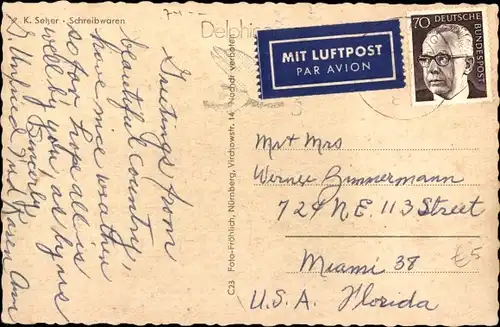 K. Seher · Schreibwaren
Delphi
MIT LUFTPOST
PAR AVION
70 DEUTSCHE
BUNDESPOST
Greetings from
beautiful country,
have nice weather
so far hope all is
well by you, as by us
Sincerely
Karen Ann
C23 Foto-Fröhlich, Nürnberg, Virchowstr. 14 Nachdr. verboten
Mr + Mrs
Werner Zimmermann
729 N.E. 113 Street
Miami 38
U.S.A. Florida
£5